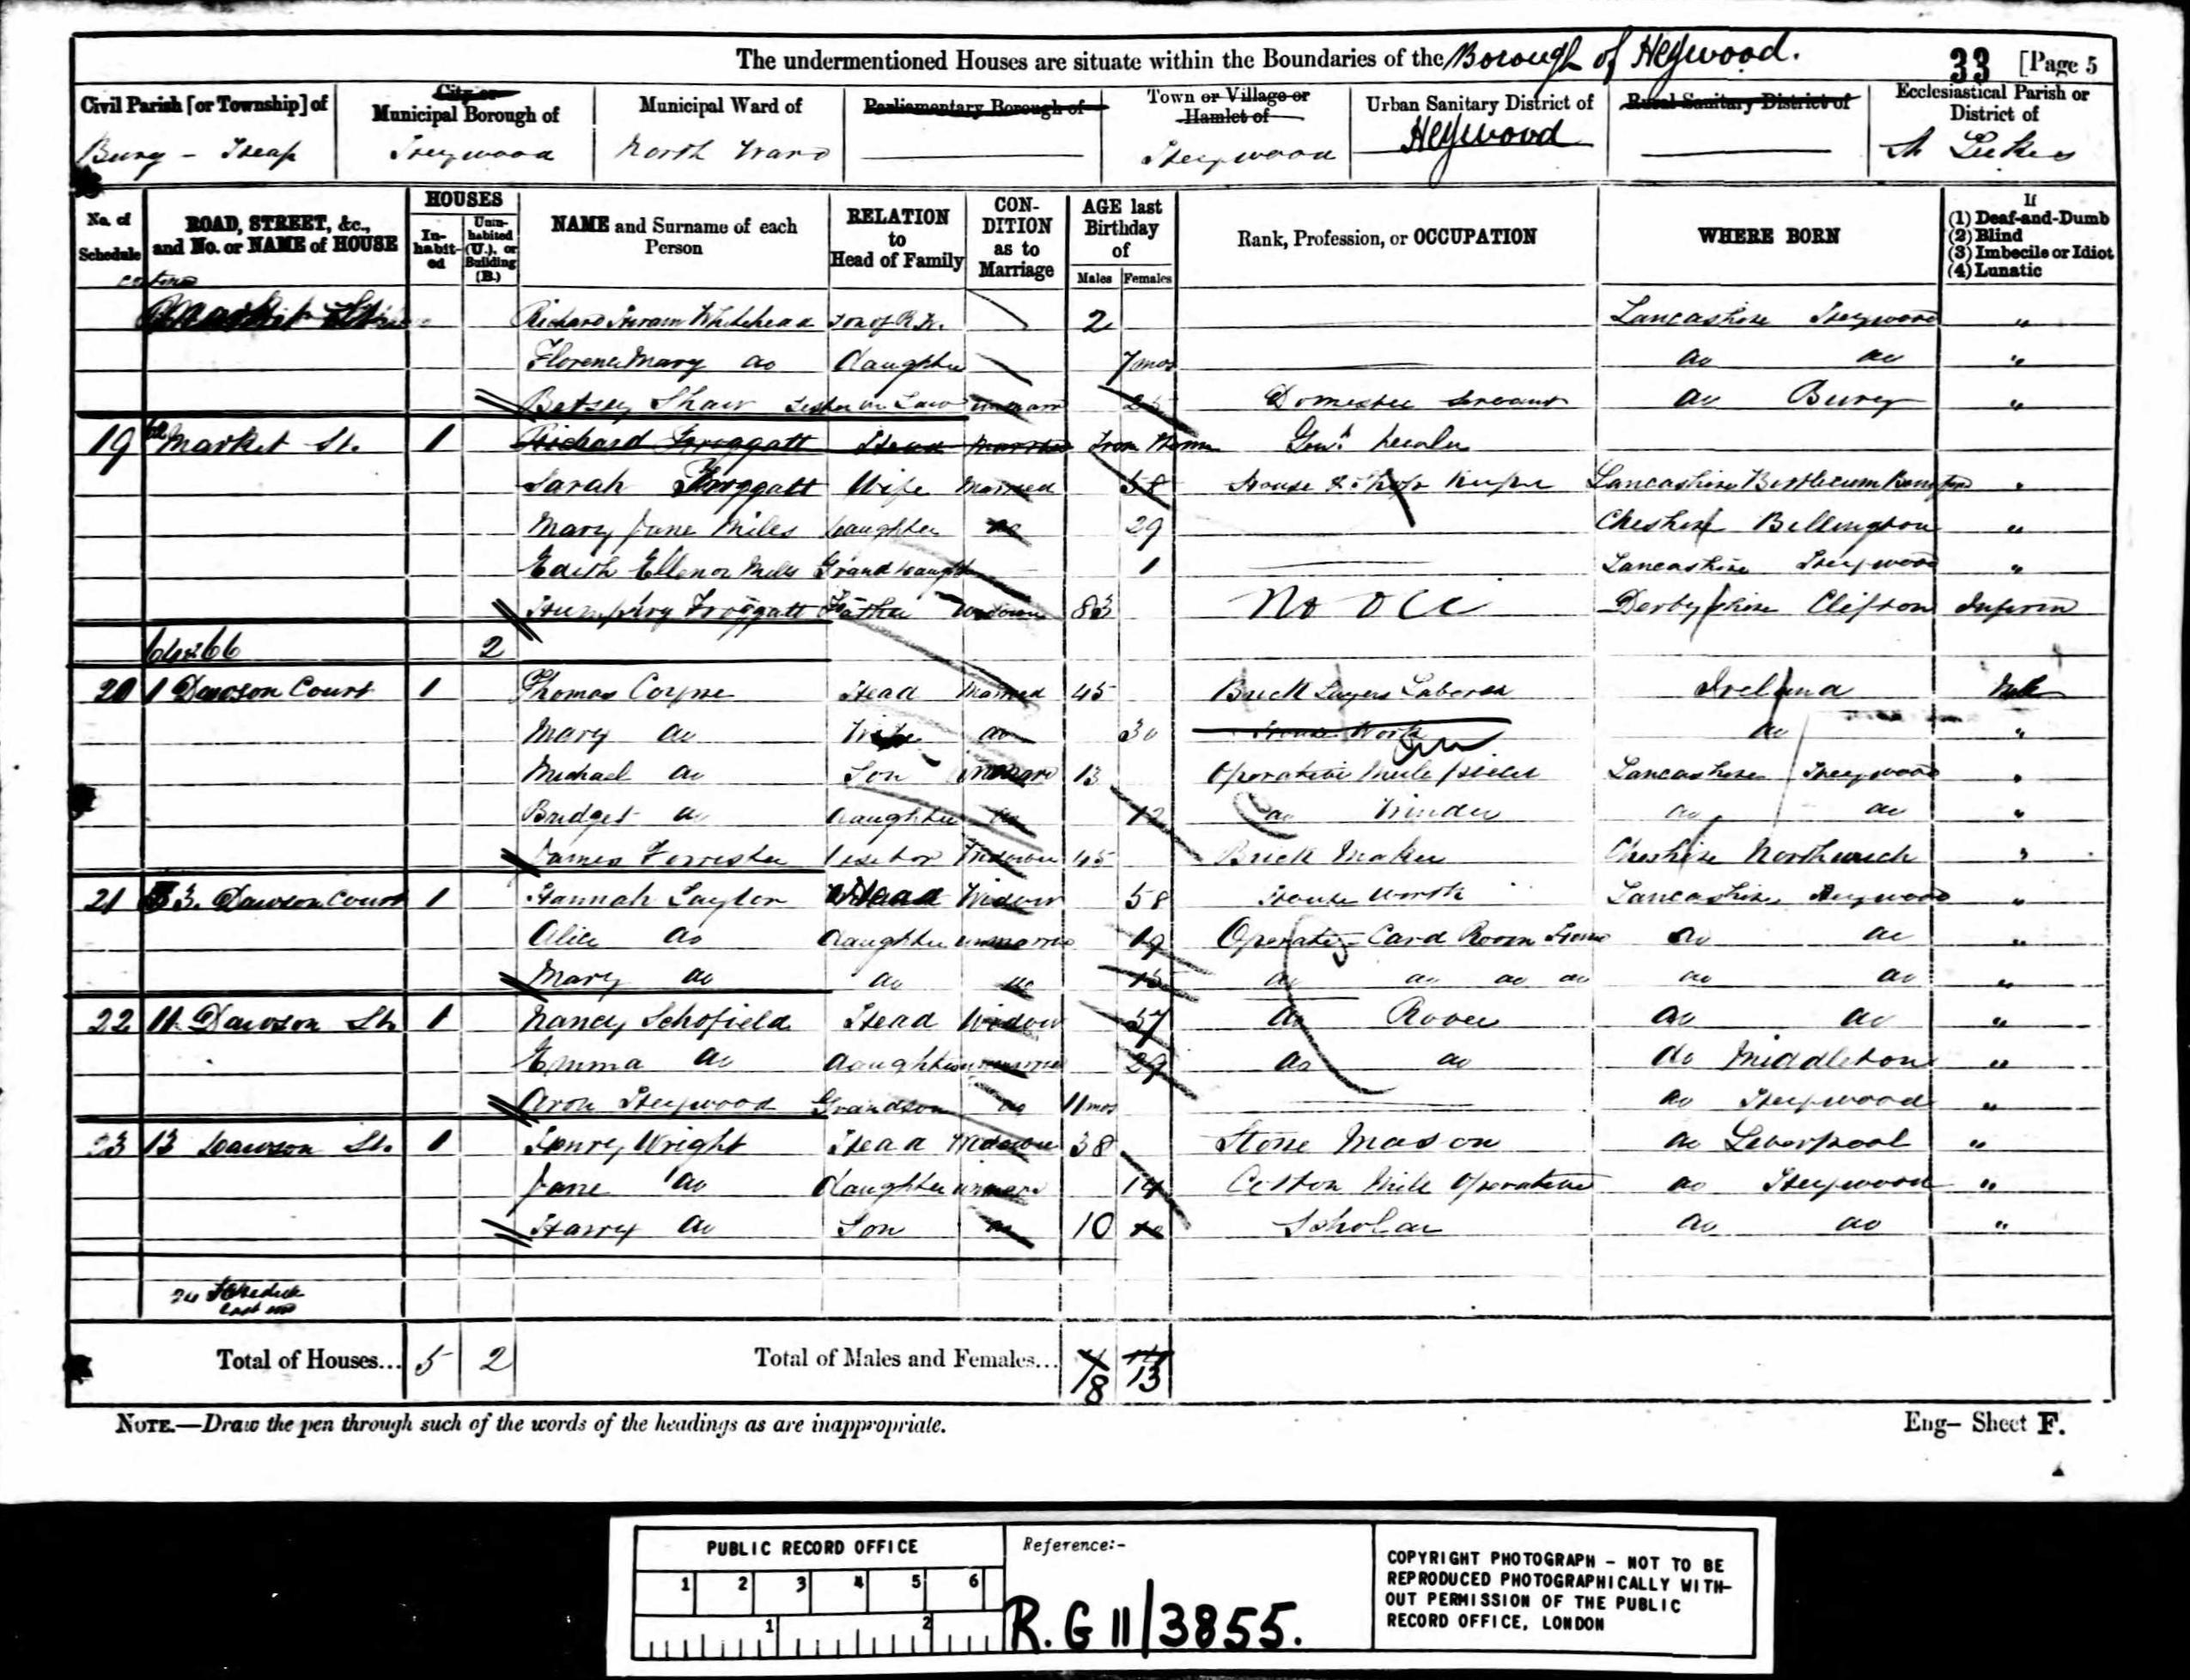 The undermentioned Houses are situate within the Boundaries of the Borough of Heywood. 33 [Page 5
Civil Parish [or Township] of City or Municipal Borough of Municipal Ward of Parliamentary Borough of Town or Village or Hamlet of Urban Sanitary District of Rural Sanitary District of Ecclesiastical Parish or District of
Bury - Heap Heywood North Ward Heywood Heywood St Lukes
No. of Schedule ROAD, STREET, &c., and No. or NAME of HOUSE HOUSES Inhabited Uninhabited (U.), or Building (B.) NAME and Surname of each Person RELATION to Head of Family CONDITION as to Marriage AGE last Birthday of Males Females Rank, Profession, or OCCUPATION WHERE BORN If (1) Deaf-and-Dumb (2) Blind (3) Imbecile or Idiot (4) Lunatic
Richard Hiram Whitehead Son of R.W. 2 Lancashire Heywood "
Florence Mary do daughter 7 mos do do "
Betsey Shaw Sister in Law unmarr 25 Domestic Servant do Bury "
19 Market St. 1 Richard Froggatt Head Married from Home Genl. Dealer
Sarah Froggatt Wife Married 58 House & Shop Keeper Lancashire "
Mary Jane Miles Daughter do 29 Cheshire Bollington "
Edith Ellenor Miles Grand daughter 1 Lancashire Heywood "
Humphry Froggatt Father Widower 83 No occ Derbyshire Clifton Infirm
64 & 66 2
20 1 Dawson Court 1 Thomas Coyne Head Married 45 Brick Layers Laborer Ireland
Mary do Wife do 30 House Work do "
Michael do Son unmarr 13 Operative Mule piecer Lancashire Heywood "
Bridget do daughter do 12 do Winder do do "
James Forrester Visitor Widower 45 Brick Maker Cheshire Northwich "
21 3. Dawson Court 1 Hannah Taylor Head Widow 58 House Work Lancashire Heywood "
Alice do daughter unmarrie 19 Operative Card Room do do "
Mary do do do 15 do do do do do do "
22 11 Dawson St. 1 Nancy Schofield Head Widow 57 do Rover do do "
Emma do daughter unmarrie 29 do do do Middleton "
Aron Heywood Grandson do 11 mos do Heywood "
23 13 Dawson St. 1 Henry Wright Head Widower 38 Stone Mason do Leverpool "
Jane do daughter unmarr 14 Cotton Mill Operative do Heywood "
Harry do Son do 10 Scholar do do "
24 Schedule
Total of Houses... 5 2 Total of Males and Females... 8 13
NOTE.—Draw the pen through such of the words of the headings as are inappropriate. Eng— Sheet F.
PUBLIC RECORD OFFICE
1 2 3 4 5 6
1 2
Reference:-
R.G 11/3855.
COPYRIGHT PHOTOGRAPH - NOT TO BE
REPRODUCED PHOTOGRAPHICALLY WITH-
OUT PERMISSION OF THE PUBLIC
RECORD OFFICE, LONDON